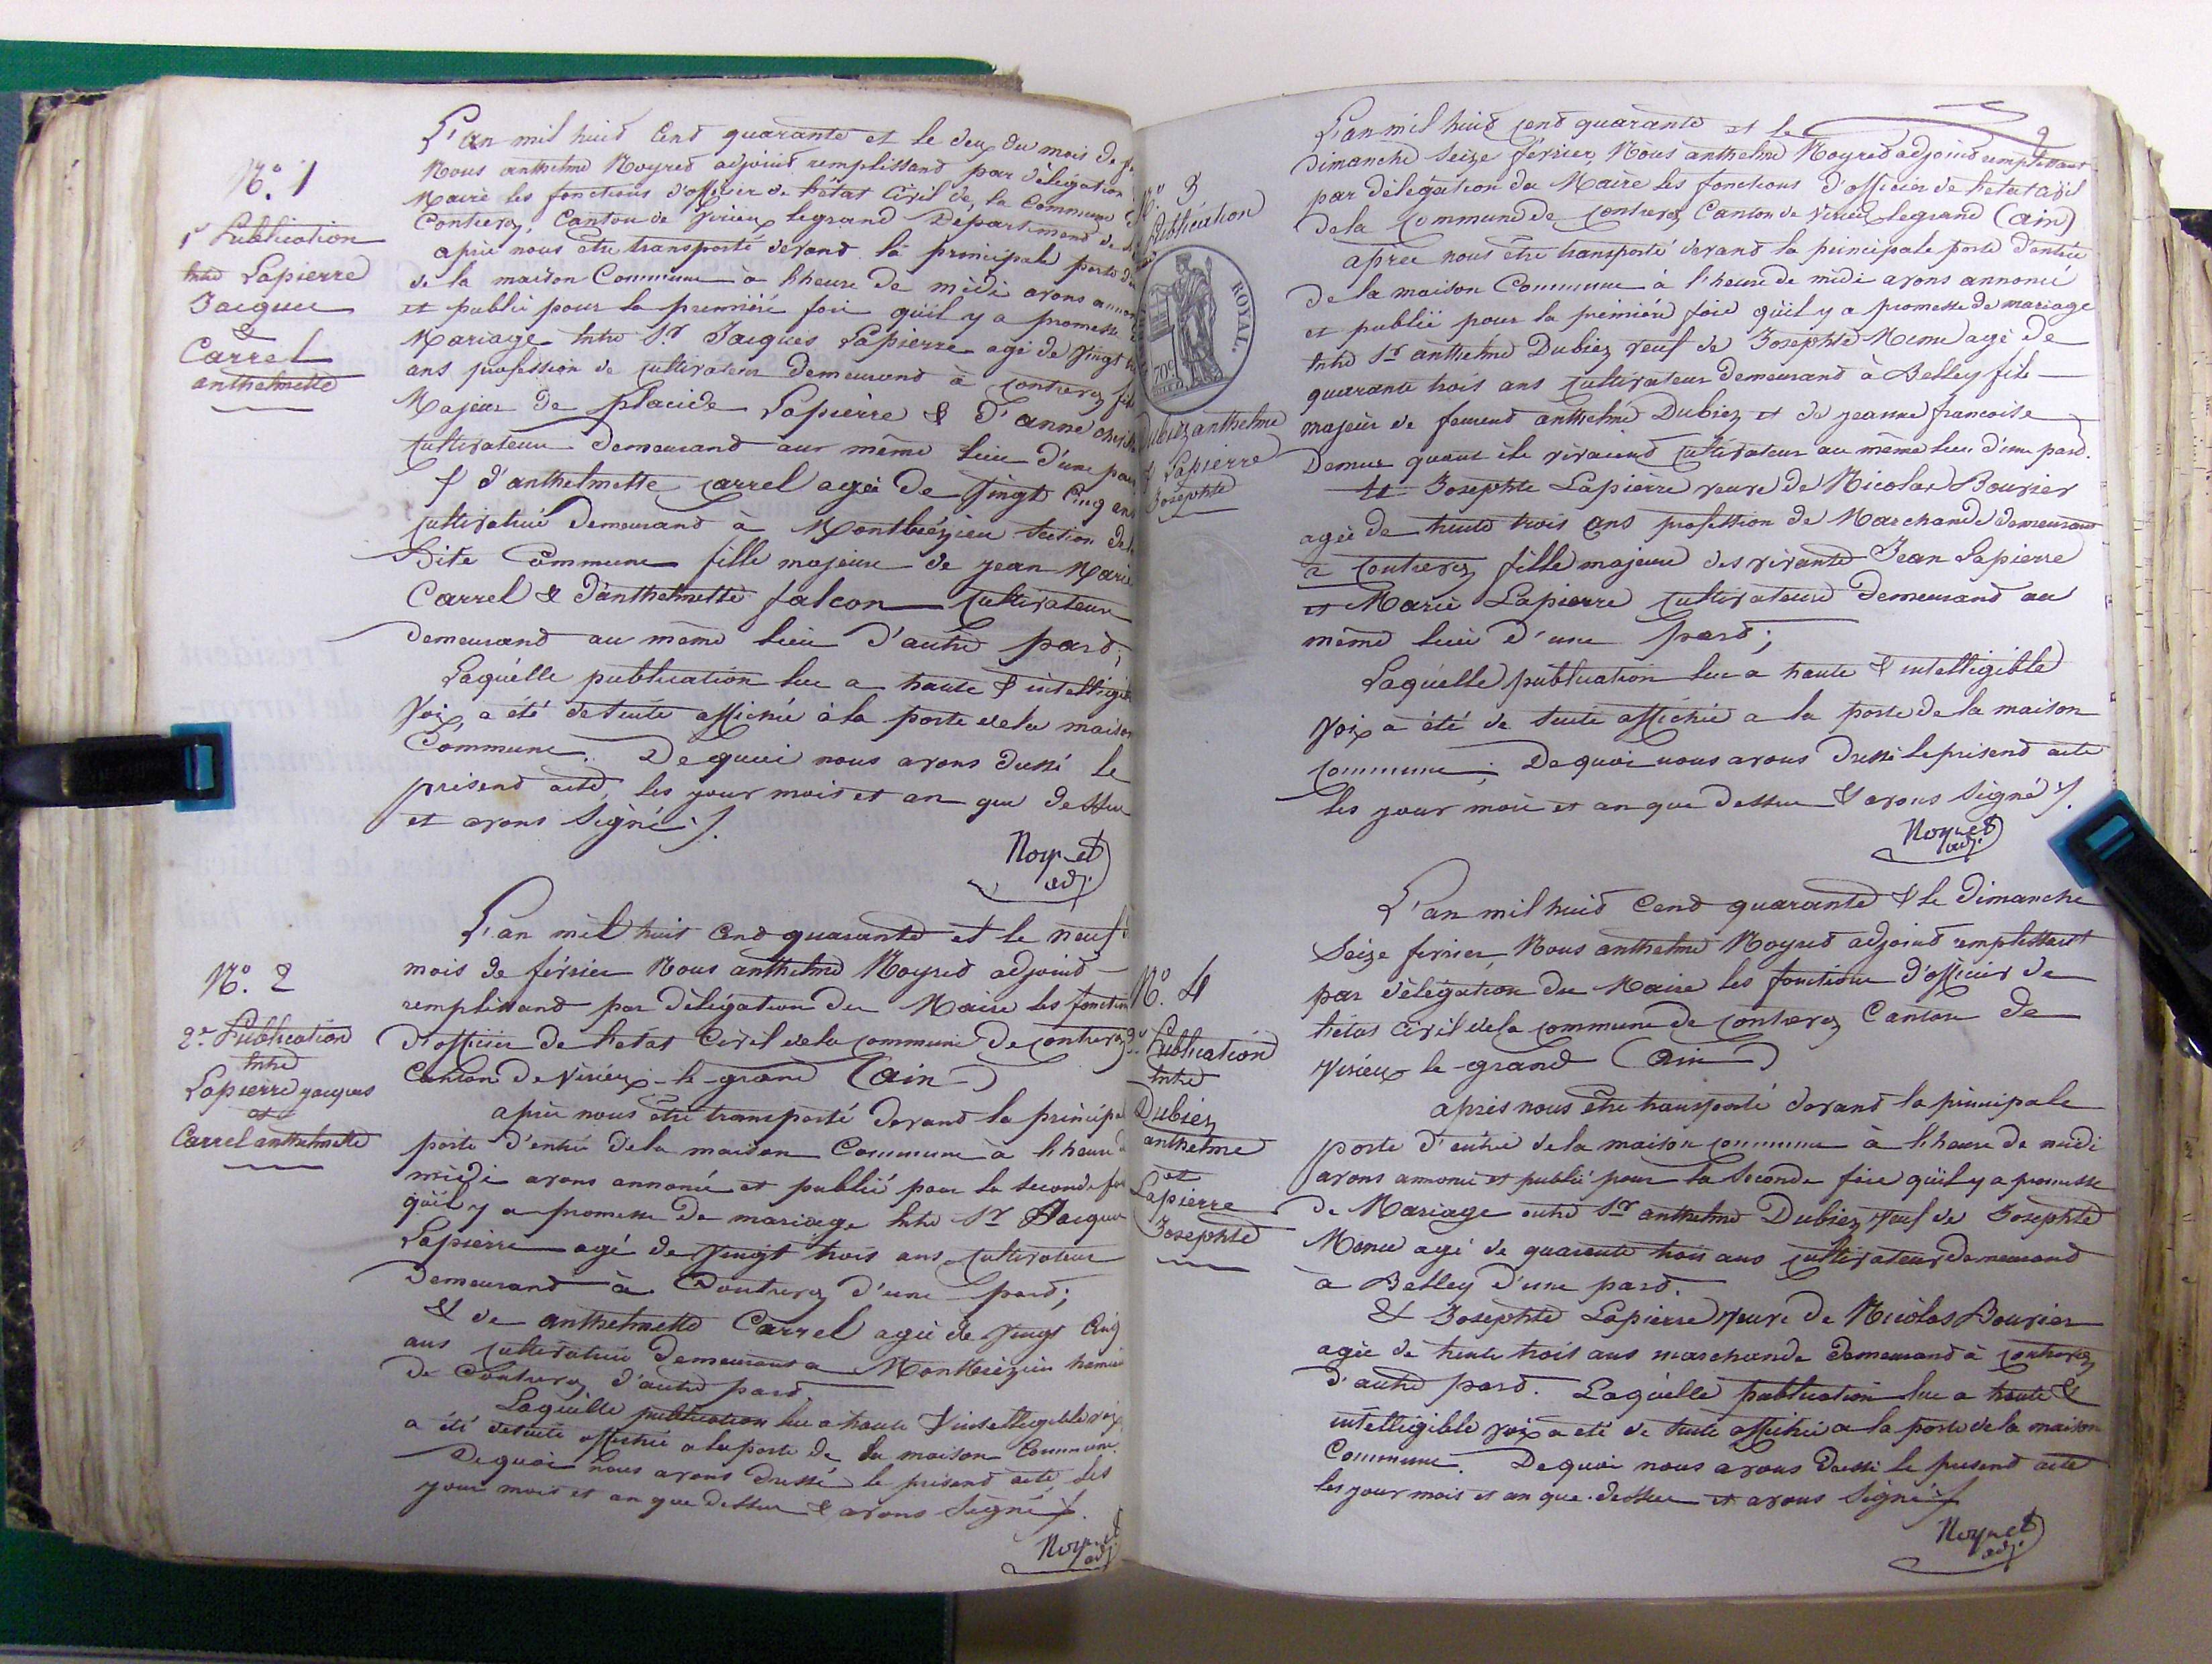 N.° 1
1re Publication
entre Lapierre
Jacques
&
Carrel
anthelmette
L'an mil huit Cent quarante et le deux du mois de
Nous anthelme Noyret adjoint remplissant par délégation
Maire les fonctions d'officier de l'état Civil de la Commune
Contrevoz, Canton de Virieu legrand Departement de
après nous être transporté devant la principale porte
de la maison Commune à l'heure de midi avons
et publié pour la première fois qu'il y a promesse
Mariage entre Sr. Jacques Lapierre agé de vingt
ans profession de cultivateur demeurant à contrevoz
Majeur de placide Lapierre & d'anne
cultivateurs demeurant aux même lieu d'une
& d'anthelmette carrel agée de vingt Cinq ans
cultivatrice demeurant à Montbrézieu section de
Dite Commune fille majeure de jean Marie
Carrel & d'anthelmette falcon cultivateurs
demeurant au même lieu d'autre part;
Laquelle publication lue a haute & intelligible
Voix a été de suite affichée à la porte de la maison
Commune. De quoi nous avons dressé le
présent acte, les jour mois et an que dessus
et avons signé ./.
Noyret
adj.
N.° 2
2e Publication
entre
Lapierre jacques
et
Carrel anthelmette
L'an mil huit Cent quarante et le neuf
mois de février Nous anthelme Noyret adjoint
remplissant par délégation du Maire les fonctions
d'officier de l'état Civil de la commune de contrevoz
Canton de Virieu-le-grand (ain)
après nous être transporté devant la principale
porte d'entrée de la maison Commune à l'heure
midi avons annoncé et publié pour la seconde fois
qu'il y a promesse de mariage entre Sr Jacques
Lapierre agé de vingt trois ans cultivateur
demeurant à Contrevoz d'une part;
& de anthelmette Carrel agée de vingt Cinq
ans cultivatrice demeurant a Montbrézieu hameau
de Contrevoz d'autre part.
Laquelle publication lue a haute & intelligible voix
a été desuite affichée a la porte de la maison Commune.
De quoi nous avons dressé le présent acte, les
jour mois et an que dessus & avons signé ./.
Noyret
adj.
N.° 3
Publication
ROYAL.
70c
Dubiez anthelme
& Lapierre
Josephte
L'an mil huit cent quarante et le
dimanche seize février, Nous anthelme Noyret adjoint remplissant
par délégation du Maire les fonctions d'officier de l'état civil
de la commune de contrevoz Canton de Virieu legrand (ain)
après nous être transporté devant la principale porte d'entrée
de la maison Commune à l'heure de midi avons annoncé
et publié pour la première fois qu'il y a promesse de mariage
entre Sr anthelme Dubiez veuf de Josephte agé de
quarante trois ans cultivateur demeurant à Belley fils
majeur de anthelme Dubiez et de jeanne francoise
quand ils vivaient cultivateur au même lieu d'une part.
et Josephte Lapierre veuve de Nicolas Bouvier
agée de trente trois ans profession de Marchande demeurant
à contrevoz fille majeure des vivants Jean Lapierre
et Marie Lapierre cultivateurs demeurant au
même lieu d'une part;
Laquelle publication lue a haute & intelligible
Voix a été de suite affichée a la porte de la maison
commune; De quoi nous avons dressé le présent acte
les jour mois et an que dessus & avons signé ./.
Noyret
adj.
N.° 4
2e Publication
entre
Dubiez
anthelme
et
Lapierre
Josephte
L'an mil huit Cent quarante & le dimanche
Seize fevrier, Nous anthelme Noyret adjoint remplissant
par délégation du Maire les fonctions d'officier de
l'état civil de la commune de contrevoz Canton de
Virieu le-grand (ain)
après nous être transporté devant la principale
porte d'entrée de la maison commune à l'heure de midi
avons annoncé et publié pour la seconde fois qu'il y a promesse
de Mariage entre Sr anthelme Dubiez veuf de Josephte
agé de quarante trois ans cultivateur demeurant
à Belley d'une part.
& Josephte Lapierre veuve de Nicolas Bouvier
agée de trente trois ans marchande demeurant à contrevoz
d'autre part. Laquelle publication lue a haute &
intelligible voix a été de suite affichée a la porte de la maison
Commune. De quoi nous avons dressé le présent acte
les jour mois et an que dessus et avons signé ./.
Noyret
adj.